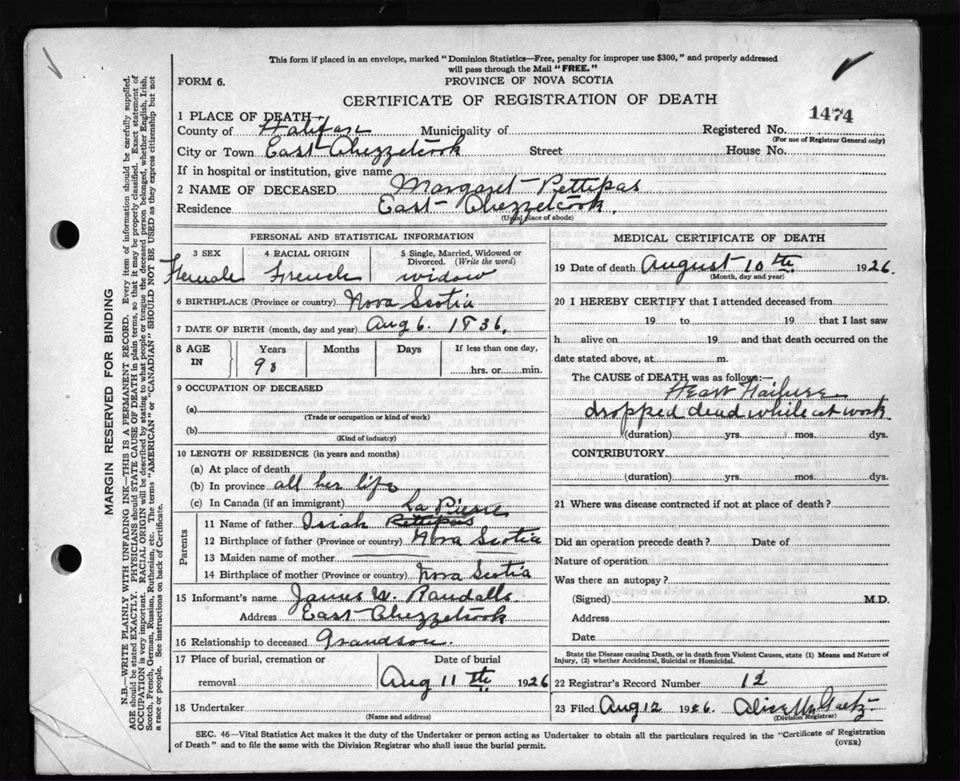 This form if placed in an envelope, marked "Dominion Statistics—Free, penalty for improper use $300," and properly addressed
will pass through the Mail "FREE."
FORM 6.
PROVINCE OF NOVA SCOTIA
CERTIFICATE OF REGISTRATION OF DEATH
1474
1 PLACE OF DEATH—
County of Halifax Municipality of Registered No.
(For use of Registrar General only)
City or Town East Chezzetcook Street House No.
If in hospital or institution, give name
2 NAME OF DECEASED Margaret Pettipas
Residence East Chezzetcook.
(Usual place of abode)
PERSONAL AND STATISTICAL INFORMATION
3 SEX 4 RACIAL ORIGIN 5 Single, Married, Widowed or
Divorced. (Write the word)
Female French widow
6 BIRTHPLACE (Province or country) Nova Scotia
7 DATE OF BIRTH (month, day and year) Aug 6. 1836.
8 AGE IN Years Months Days If less than one day,
90 hrs. or min.
9 OCCUPATION OF DECEASED
(a)
(Trade or occupation or kind of work)
(b)
(Kind of industry)
10 LENGTH OF RESIDENCE (in years and months)
(a) At place of death
(b) In province all her life
(c) In Canada (if an immigrant)
La Pierre
Parents
11 Name of father Isiah Pettipas
12 Birthplace of father (Province or country) Nova Scotia
13 Maiden name of mother
14 Birthplace of mother (Province or country) Nova Scotia
15 Informant's name James W. Randalls
Address East Chezzetcook
16 Relationship to deceased Grandson.
17 Place of burial, cremation or Date of burial
removal Aug 11th 1926
18 Undertaker
(Name and address)
MEDICAL CERTIFICATE OF DEATH
19 Date of death August 10th 1926.
(Month, day and year)
20 I HEREBY CERTIFY that I attended deceased from
19 to 19 that I last saw
h alive on 19 and that death occurred on the
date stated above, at m.
The CAUSE of DEATH was as follows:—
Heart Failure
dropped dead while at work
(duration) yrs. mos. dys.
CONTRIBUTORY
(duration) yrs. mos. dys.
21 Where was disease contracted if not at place of death?
Did an operation precede death? Date of
Nature of operation
Was there an autopsy?
(Signed) M.D.
Address
Date
State the Disease causing Death, or in death from Violent Causes, state (1) Means and Nature of
Injury, (2) whether Accidental, Suicidal or Homicidal.
22 Registrar's Record Number 12
23 Filed Aug 12 1926. Alice M Gaetz
(Division Registrar)
SEC. 46—Vital Statistics Act makes it the duty of the Undertaker or person acting as Undertaker to obtain all the particulars required in the "Certificate of Registration
of Death" and to file the same with the Division Registrar who shall issue the burial permit.
(OVER)
MARGIN RESERVED FOR BINDING
N.B.—WRITE PLAINLY WITH UNFADING INK—THIS IS A PERMANENT RECORD. Every item of information should be carefully supplied.
AGE should be stated EXACTLY. PHYSICIANS should STATE CAUSE OF DEATH in plain terms, so that it may be properly classified. Exact statement of
OCCUPATION is very important. RACIAL ORIGIN will be described by stating to what people or tongue the deceased person belonged, whether English, Irish,
Scotch, French, German, Russian, Ruthenian, etc. The terms "AMERICAN" or "CANADIAN" SHOULD NOT BE USED as they express citizenship but not
a race or people. See instructions on back of Certificate.